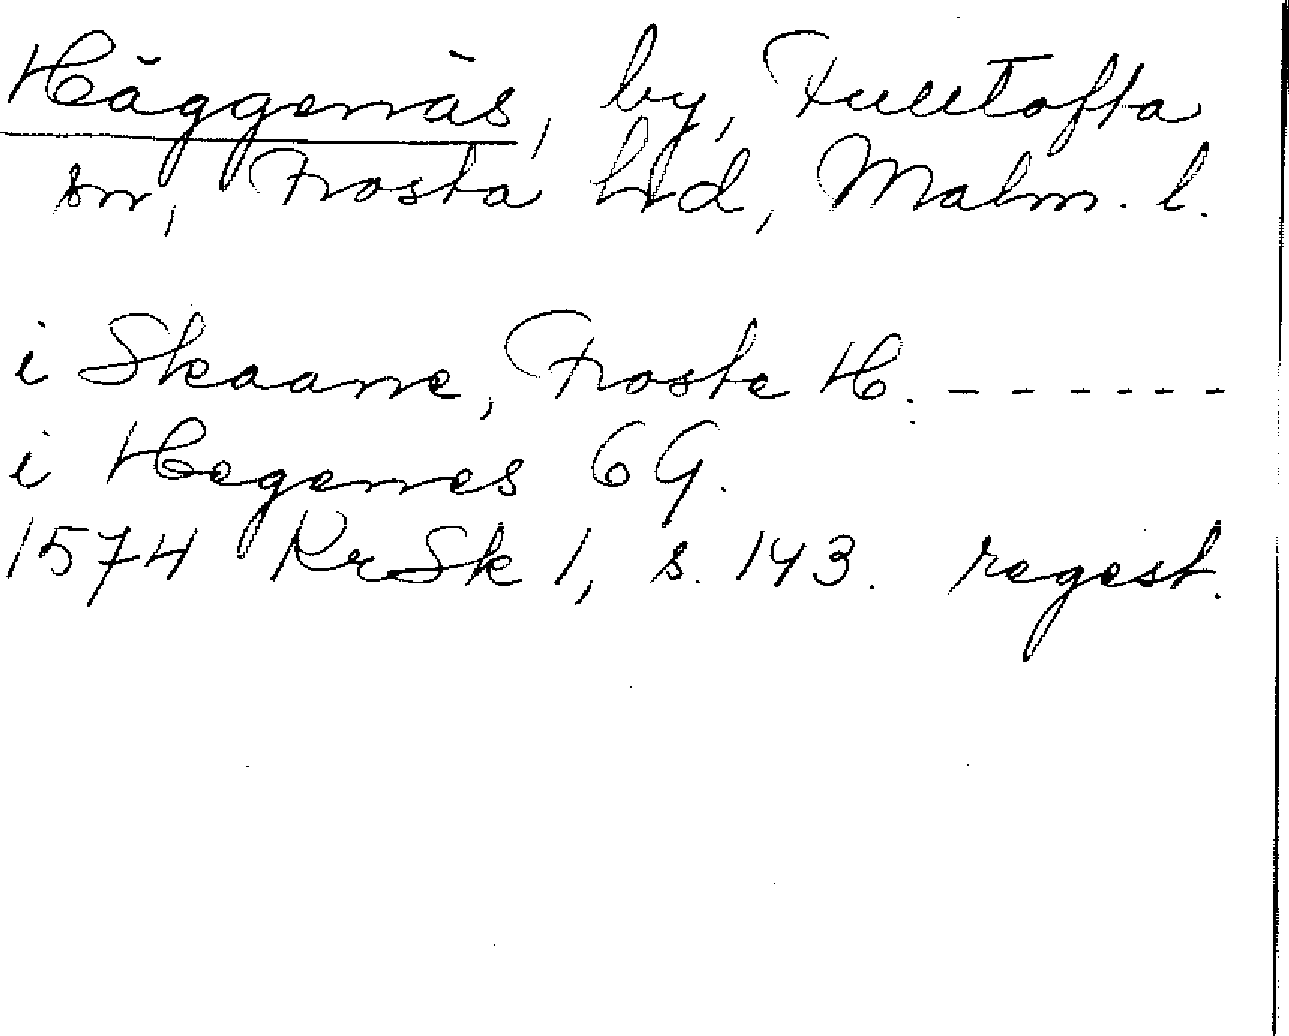 Häggenäs, by, Fulltofta
sn, Frosta hd, Malm. l.
i Skaane, Froste H. - - - - - -
i Hegenes 6 G.
1574 KrSk 1, s. 143. regest.